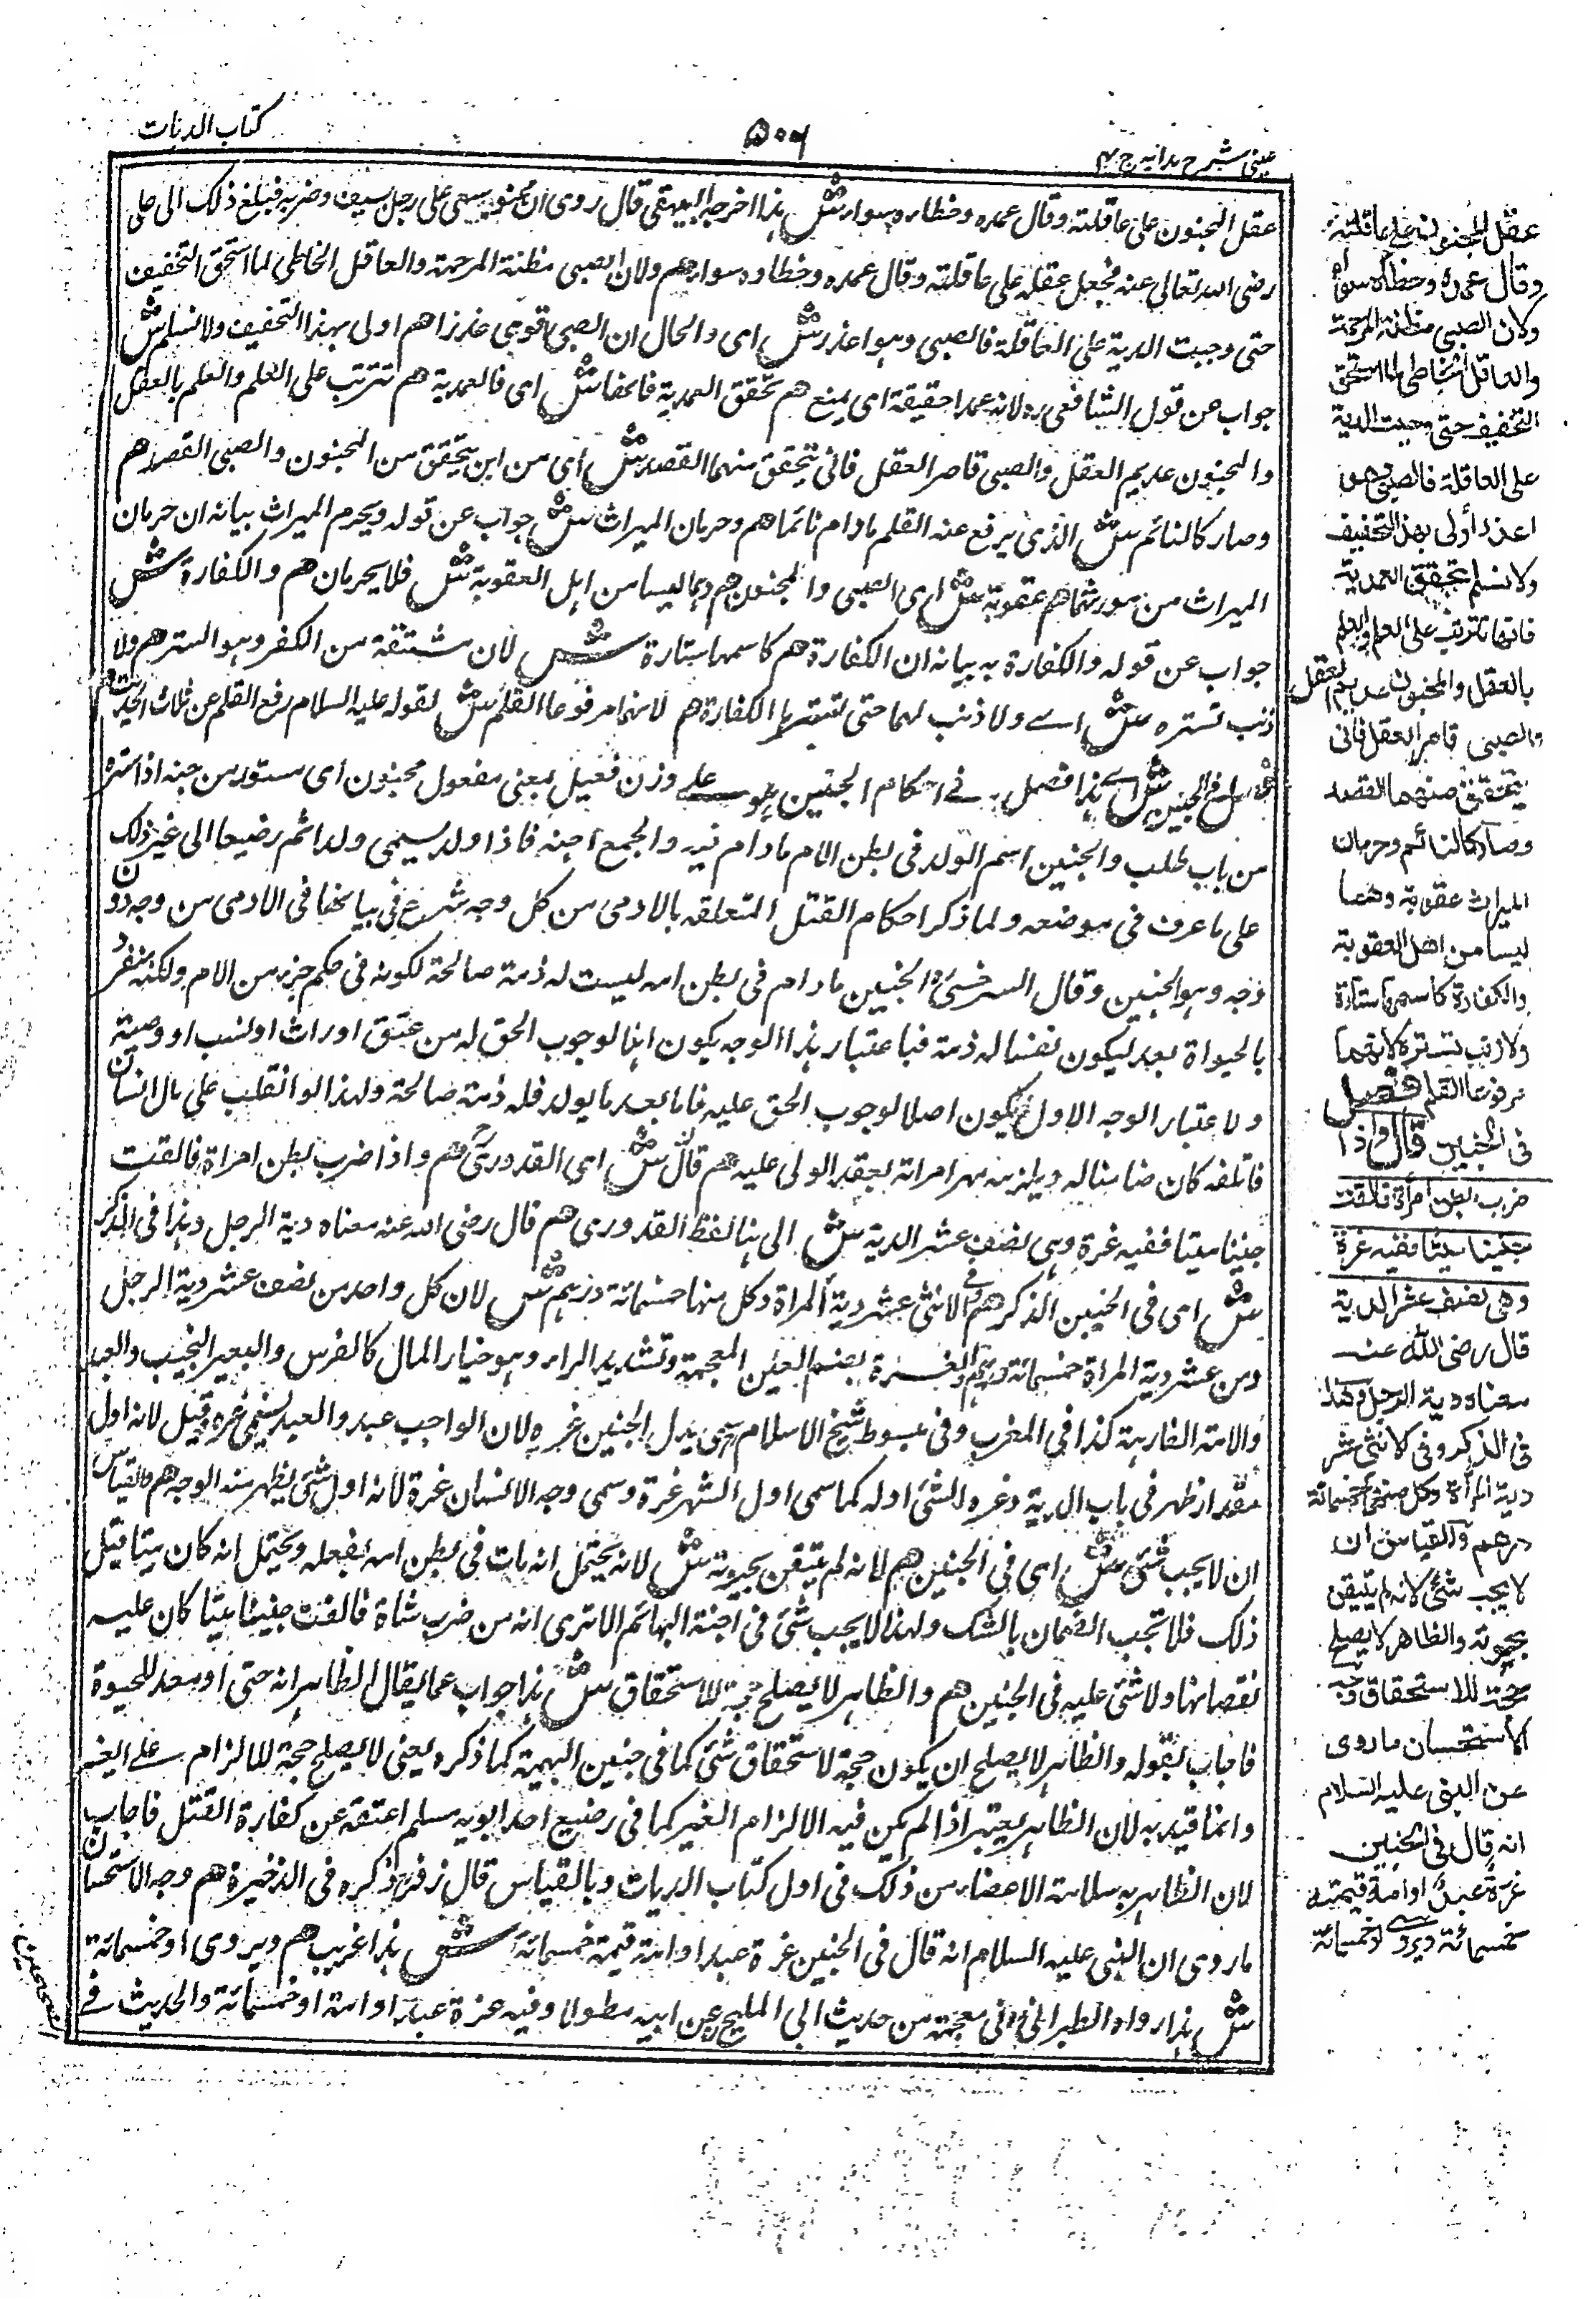 عینی شرح ہدایہ ج ۴
۵۰۶
کتاب الدیات
عقل المجنون على عاقلته وقال عمده وخطاره سواء ش هذا اخرجه البيهقى قال روى ان مجنونا سعى على رجل بسيف وضربه فبلغ ذلك الى على
رضى الله تعالى عنه فجعل عقله على عاقلته وقال عمده وخطاوه سواء هم ولان الصبى مظنة المرحمة والعاقل الخاطى لما استحق التخفيف
حتى وجبت الدية على العاقلة فالصبى وهو اعذر ش اى والحال ان الصبى اقوى عذرا هم اولى بهذا التخفيف ولا نسلم ش
جواب عن قول الشافعى ره لانه عمد حقيقة اى يمنع هم تحقق العمدية فانها ش اى فالعمدية هم تترتب على العلم والعلم بالعقل
والمجنون عديم العقل والصبى قاصر العقل فانى يتحقق منهما القصد ش اى من اين يتحقق من المجنون والصبى القصد هم
وصار كالنائم ش الذى يرفع عنه القلم ما دام نائما هم وحرمان الميراث ش جواب عن قوله ويحرم الميراث بيانه ان حرمان
الميراث من مورثهما هم عقوبة ش اى الصبى والمجنون هم وهما ليسا من اهل العقوبة ش فلا يحرمان هم والكفارة ش
جواب عن قوله والكفارة به بيانه ان الكفارة هم كاسمها ستارة ش لان مشتقة من الكفر وهو الستر هم ولا
ذنب تستره ش اى ولا ذنب لهما حتى تستره الكفارة هم لانهما مرفوعا القلم ش لقوله عليه السلام رفع القلم عن ثلاث الحديث
فصل فى الجنين ش اى هذا فصل فى احكام الجنين وهو على وزن فعيل بمعنى مفعول مجنون اى مستور من جنه اذا ستره
من باب طلب والجنين اسم الولد فى بطن الام ما دام فيه والجمع اجنة فاذا ولد يسمى ولدا ثم رضيعا الى غير ذلك
على ما عرف فى موضعه ولما ذكر احكام القتل المتعلقه بالادمى من كل وجه شرع فى بيانها فى الادمى من وجه دون
وجه وهو الجنين وقال السرخسى الجنين ما دام فى بطن امه ليست له ذمة صالحة لكونه فى حكم جزء من الام ولكنه منفرد
بالحيواة يعد ليكون نفسا له ذمة فباعتبار هذا الوجه يكون اهلا لوجوب الحق له من عتق او ارث او نسب او وصية
ولاعتبار الوجه الاول لا يكون اصلا لوجوب الحق عليه فاما بعد ما يولد فله ذمة صالحة ولهذا لو انقلب على مال انسان
فاتلفه كان ضامنا له ويلزمه مهر امراته بعقد الولى عليه هم قال ش اى القدورى هم واذا ضرب بطن امراة فالقت
جنينا ميتا ففيه غرة وهى نصف عشر الدية ش الى هنا لفظ القدورى هم قال رضى الله عنه معناه دية الرجل وهذا فى الذكر
ش اى فى الجنين الذكر هم وفى الانثى عشر دية المراة وكل منهما خمسمائة درهم ش لان كل واحد من نصف عشر دية الرجل
ومن عشر دية المراة خمسمائة درهم والغرة بضم الغين المعجمة وتشديد الراء وهو خيار المال كالفرس والبعير النجيب والعبد
والامة الفارهة كذا فى المغرب وفى مبسوط شيخ الاسلام سمى بدل الجنين غره لان الواجب عبد والعبد يسمى غره وقيل لانه اول
مقدار ظهر فى باب الدية وغره الشئ اوله كما سمى اول الشهر غرة وسمى وجه الانسان غرة لانه اول شئ يظهر منه الوجه هم والقياس
ان لا يجب شئ ش اى فى الجنين هم لانه لم يتيقن بحيوته ش لانه يحتمل انه مات فى بطن امه بفعله ويحتمل انه كان ميتا قبل
ذلك فلا تجب الضمان بالشك ولهذا لا يجب شئ فى اجنة البهائم الا ترى انه من ضرب شاة فالقت جنينا ميتا كان عليه
نقصانها ولا شئ عليه فى الجنين هم والظاهر لا يصلح حجة للاستحقاق ش هذا جواب عما يقال الظاهر انه حى او معد للحيوة
فاجاب بقوله والظاهر لا يصلح ان يكون حجة لاستحقاق شئ كما فى جنين البهيمة كما ذكره يعنى لا يصلح حجة للالزام على الغير
وانما قيد به لان الظاهر يعتبر اذا لم يكن فيه الالزام الغير كما فى رضيع احد ابويه مسلم اعتقه عن كفارة القتل فاجاب
لان الظاهر به سلامة الاعضاء من ذلك فى اول كتاب الديات وبالقياس قال زفر ذكره فى الذخيرة هم وجه الاستحسان
ما روى ان النبى عليه السلام انه قال فى الجنين غرة عبد او امة قيمة خمسمائة ش هذا غريب هم ويروى او خمسمائة
ش هذا رواه الطبرانى فى معجمه من حديث ابى المليح عن ابيه مطولا وفيه غرة عبد او امة او خمسمائة والحديث فى
الصحيحين
عقل المجنون على عاقلته
وقال عمده وخطاه سواء
ولان الصبى مظنة المرحمة
والعاقل الخاطى لما استحق
التخفيف حتى وجبت الدية
على العاقلة فالصبى وهو
اعذر أولى بهذا التخفيف
ولا نسلم تحقق العمدية
فانها تترتب على العلم والعلم
بالعقل والمجنون عديم العقل
والصبى قاصر العقل فانى
يتحقق منهما القصد
وصار كالنائم وحرمان
الميراث عقوبة وهما
ليسا من اهل العقوبة
والكفارة كاسمها ستارة
ولا ذنب تستره لانهما
مرفوعا القلم فصل
فى الجنين قال واذا
ضرب بطن امرأة فالقت
جنينا ميتا ففيه غرة
وهى نصف عشر الدية
قال رضى الله عنه
معناه دية الرجل وهذا
فى الذكر وفى الانثى عشر
دية المرأة وكل منهما خمسمائة
درهم والقياس ان
لا يجب شئ لانه لم يتيقن
بحيوته والظاهر لا يصلح
حجة للاستحقاق وجه
الاستحسان ما روى
عن النبى عليه السلام
انه قال فى الجنين
غرة عبد او امة قيمته
خمسمائة ويروى او خمسمائة